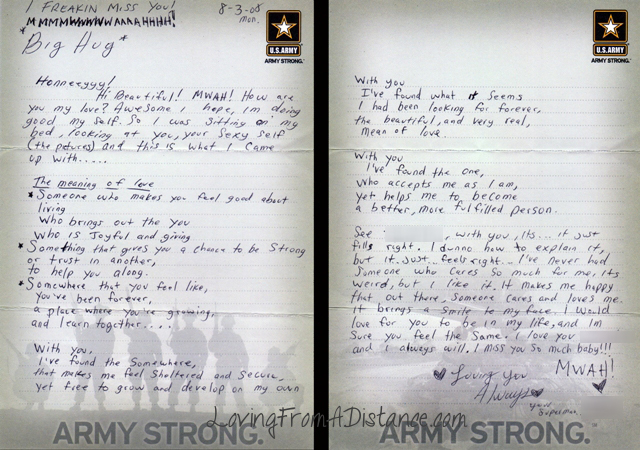 I FREAKIN MISS YOU!
MMMMWWWWWAAAAHHHH!
8-3-08
mon.
*Big Hug*
U.S.ARMY
ARMY STRONG.
Honneeyyy!
Hi Beautiful! MWAH! How are
you my love? Awesome I hope, im doing
good my self. So I was sitting on my
bed, looking at you, your sexy self
(the pictures) and this is what I came
up with.....
The meaning of love
*Someone who makes you feel good about
living
Who brings out the you
Who is Joyful and giving
*Something that gives you a chance to be Strong
or trust in another,
to help you along.
*Somewhere that you feel like,
you've been forever,
a place where you're growing,
and learn together....
With you,
I've found the Somewhere,
that makes me feel Sheltered and Secure,
yet free to grow and develop on my own
ARMY STRONG.
U.S.ARMY
ARMY STRONG.
With you
I've found what it seems
I had been looking for forever,
the beautiful, and very real,
mean of love.
With you
I've found the one,
Who accepts me as I am,
yet helps me to become
a better, more fulfilled person.
See , with you, its... it just
fills right. I dunno how to explain it,
but it just.. feels right... I've never had
Someone who cares so much for me, its
weird, but I like it. It makes me happy
that out there, Someone cares and loves me.
It brings a smile to my face. I would
love for you to be in my life, and Im
Sure you feel the Same. I love you
and I always will. I miss you so much baby!!!
MWAH!
Loving You
Always
your Superman
ARMY STRONG.
LovingFromADistance.com